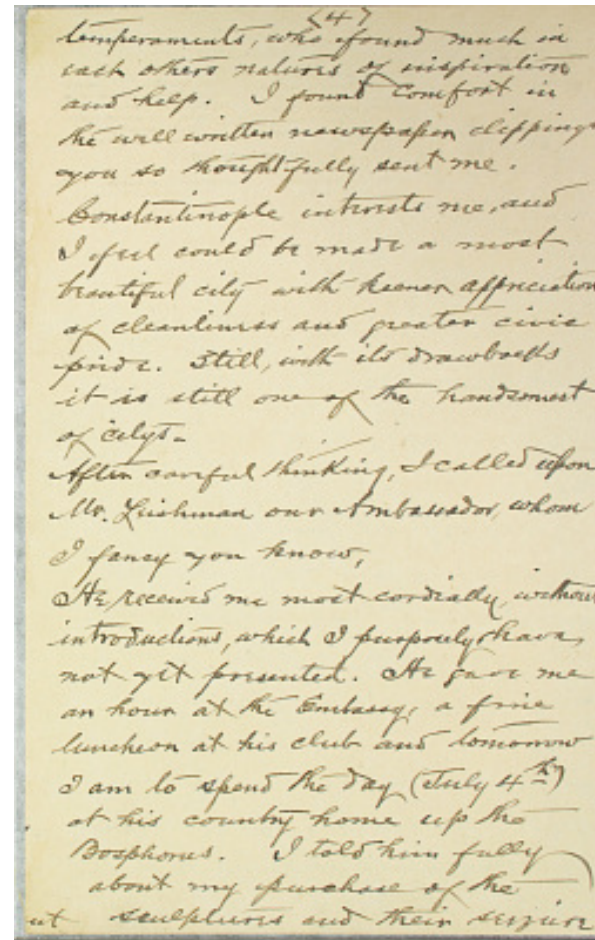 (4)
temperaments, who found much in
each others natures of inspiration
and help. I found comfort in
the well written newspaper clippings
you so thoughtfully sent me.
Constantinople interests me, and
I feel could be made a most
beautiful city with keener appreciation
of cleanliness and greater civic
pride. Still, with its drawbacks
it is still one of the handsomest
of citys.
After careful thinking, I called upon
Mr. Leishman our Ambassador, whom
I fancy you know,
He received me most cordially, without
introductions, which I purposely have
not yet presented. He gave me
an hour at the Embassy, a fine
luncheon at his club and tomorrow
I am to spend the day (July 4th)
at his country home up the
Bosphorus. I told him fully
about my purchase of the
ut sculptures and their seizure